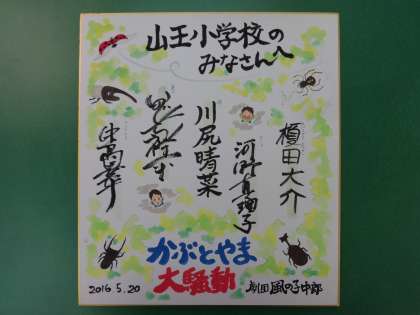 山王小学校の
みなさんへ
榎田大介
河野真理子
川尻晴菜
かぶとやま
大騒動
2016 5.20
劇団 風の子中部